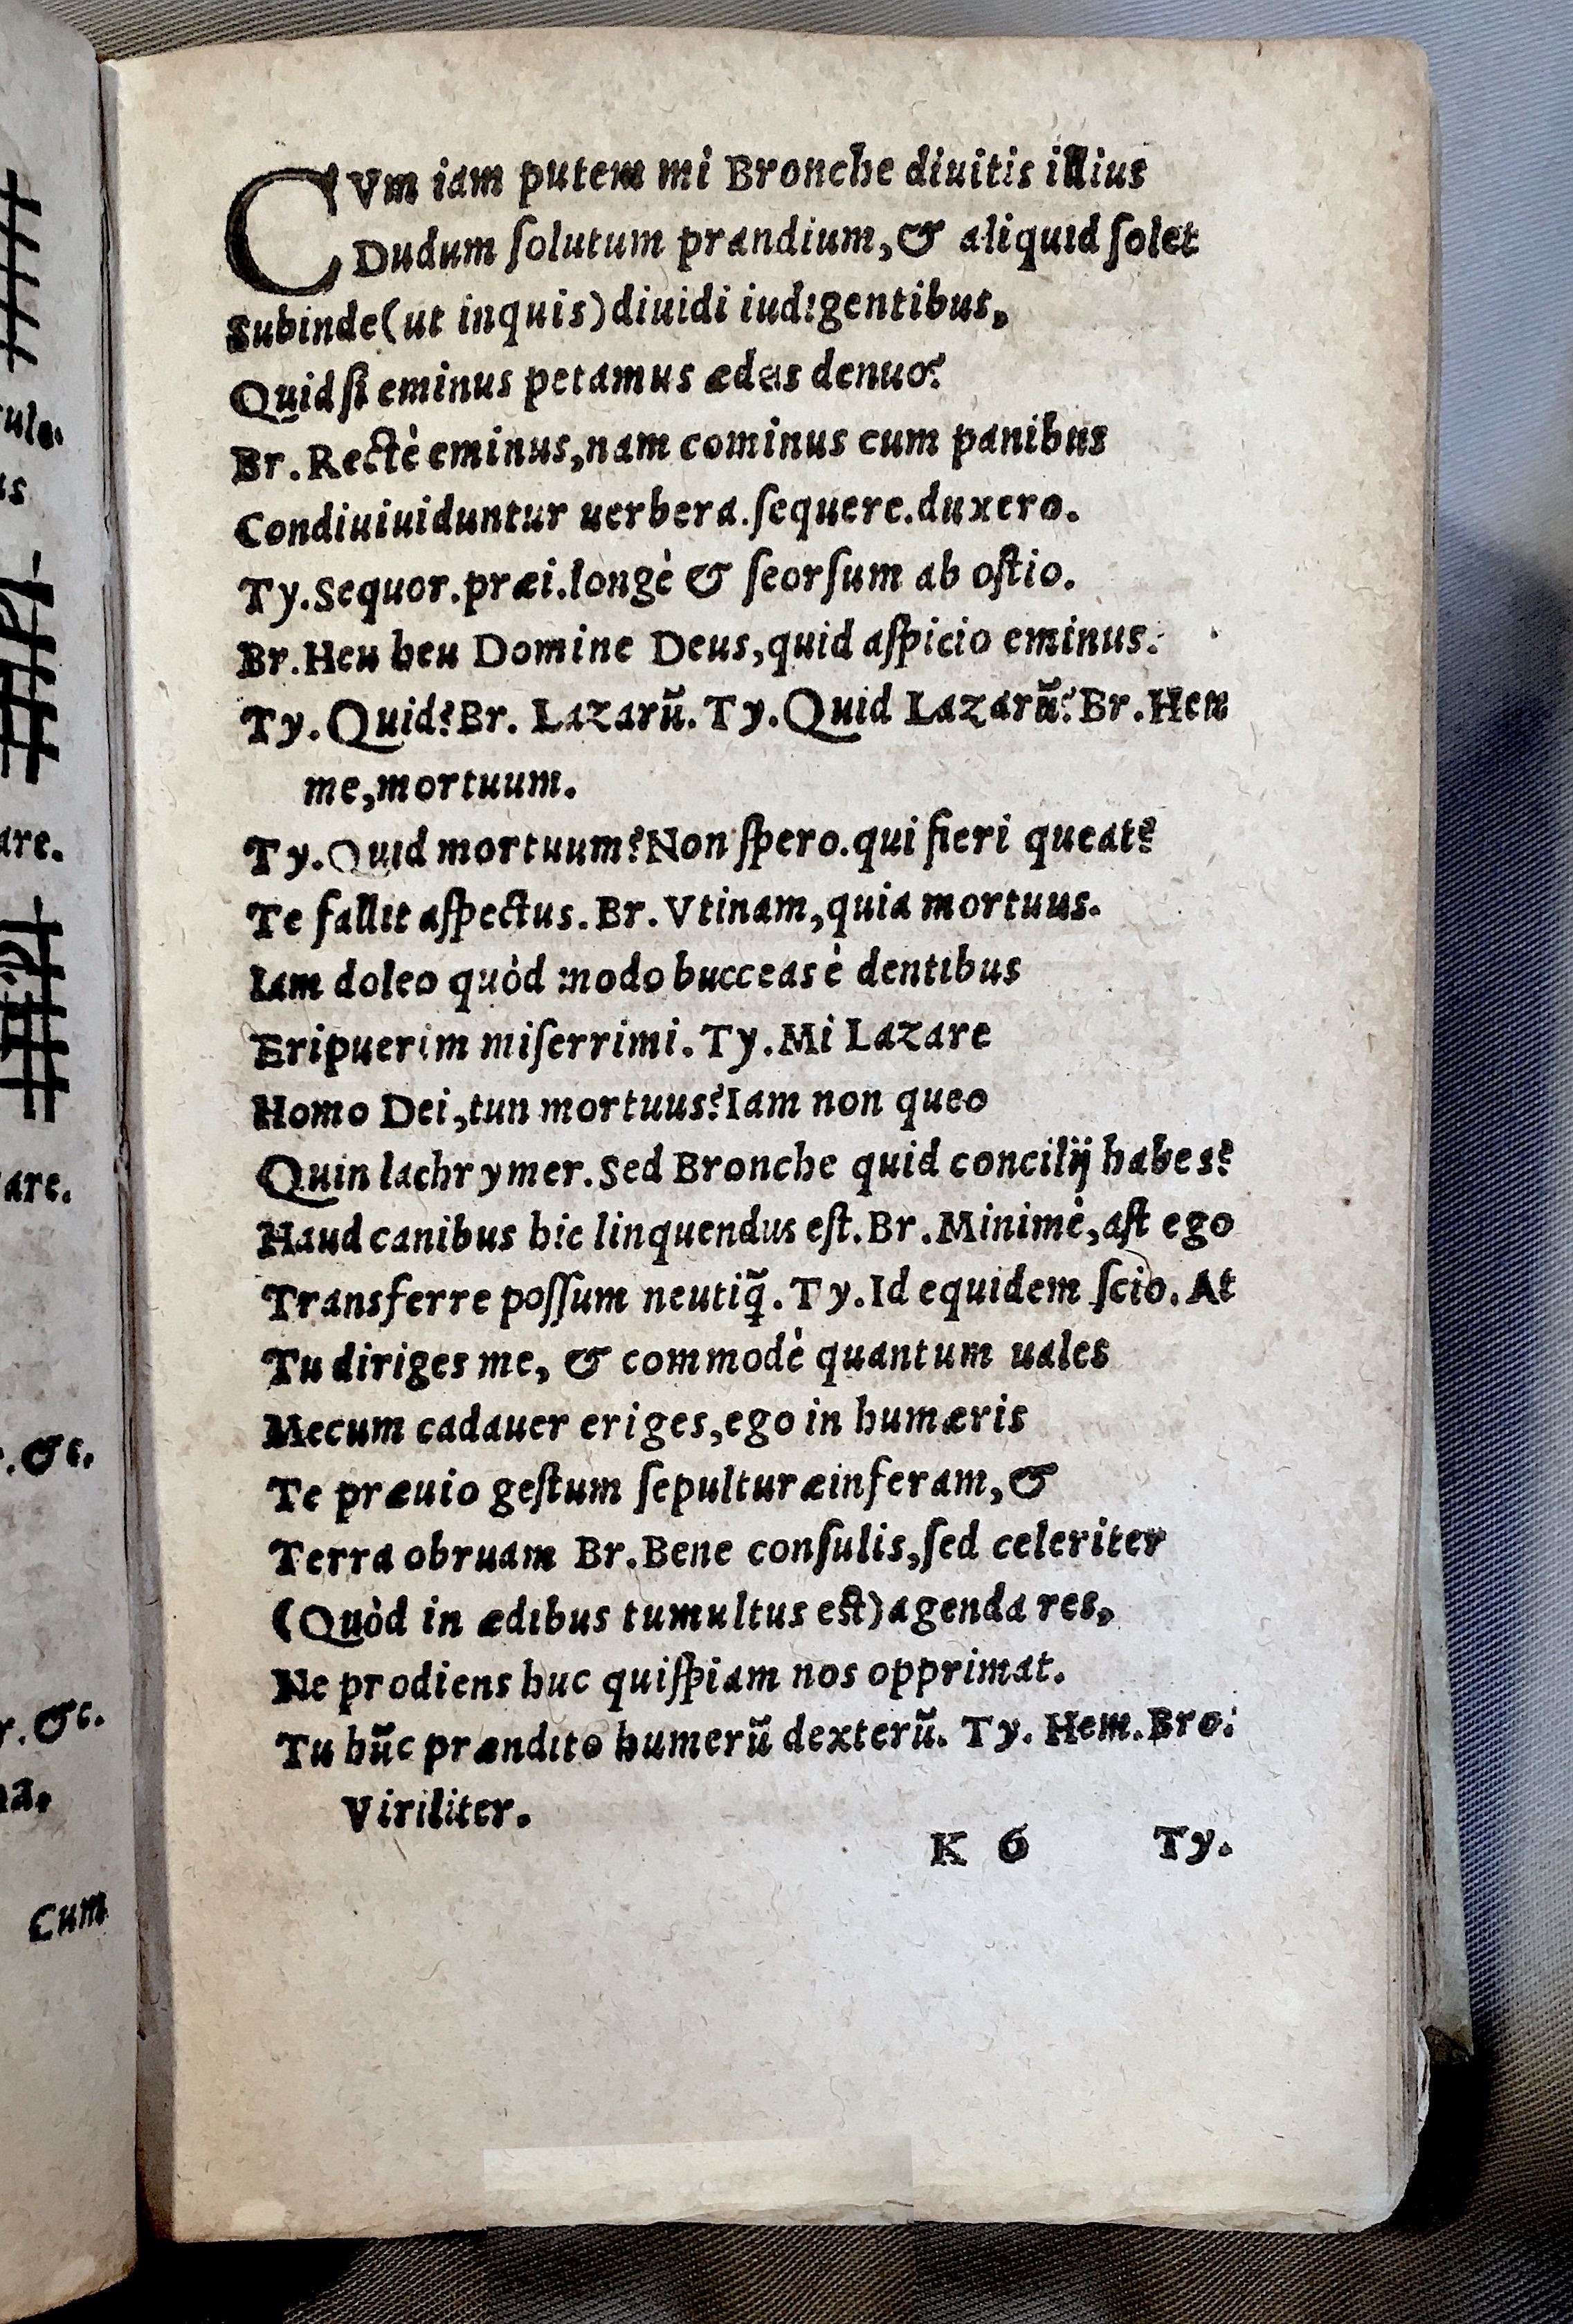 CVm iam putem mi Bronche diuitis illius
Dudum ſolutum prandium, & aliquid ſolet
Subinde (ut inquis) diuidi iudigentibus,
Quid ſi eminus petamus ædes denuo?
Br. Rectè eminus, nam cominus cum panibus
Condiuiuiduntur uerbera. ſequere. duxero.
Ty. Sequor. præi. longè & ſeorſum ab oſtio.
Br. Heu heu Domine Deus, quid aſpicio eminus.
Ty. Quid? Br. Lazarũ. Ty. Quid Lazarũ? Br. Heu
me, mortuum.
Ty. Quid mortuum? Non ſpero. qui fieri queat?
Te fallit aſpectus. Br. Vtinam, quia mortuus.
Iam doleo quòd modo bucceas è dentibus
Eripuerim miſerrimi. Ty. Mi Lazare
Homo Dei, tun mortuus? Iam non queo
Quin lachrymer. Sed Bronche quid concilij habes?
Haud canibus hic linquendus eſt. Br. Minimè, aſt ego
Transferre poſſum neutiq̃. Ty. Id equidem ſcio. At
Tu diriges me, & commodè quantum uales
Mecum cadauer eriges, ego in humæris
Te præuio geſtum ſepulturæ inferam, &
Terra obruam Br. Bene conſulis, ſed celeriter
(Quòd in ædibus tumultus eſt) agenda res,
Ne prodiens huc quiſpiam nos opprimat.
Tu hũc prændito humerũ dexterũ. Ty. Hem. Bro:
Viriliter.
K 6 Ty.
ule.
us
are.
are.
r. &c.
r. &c.
na.
Cum